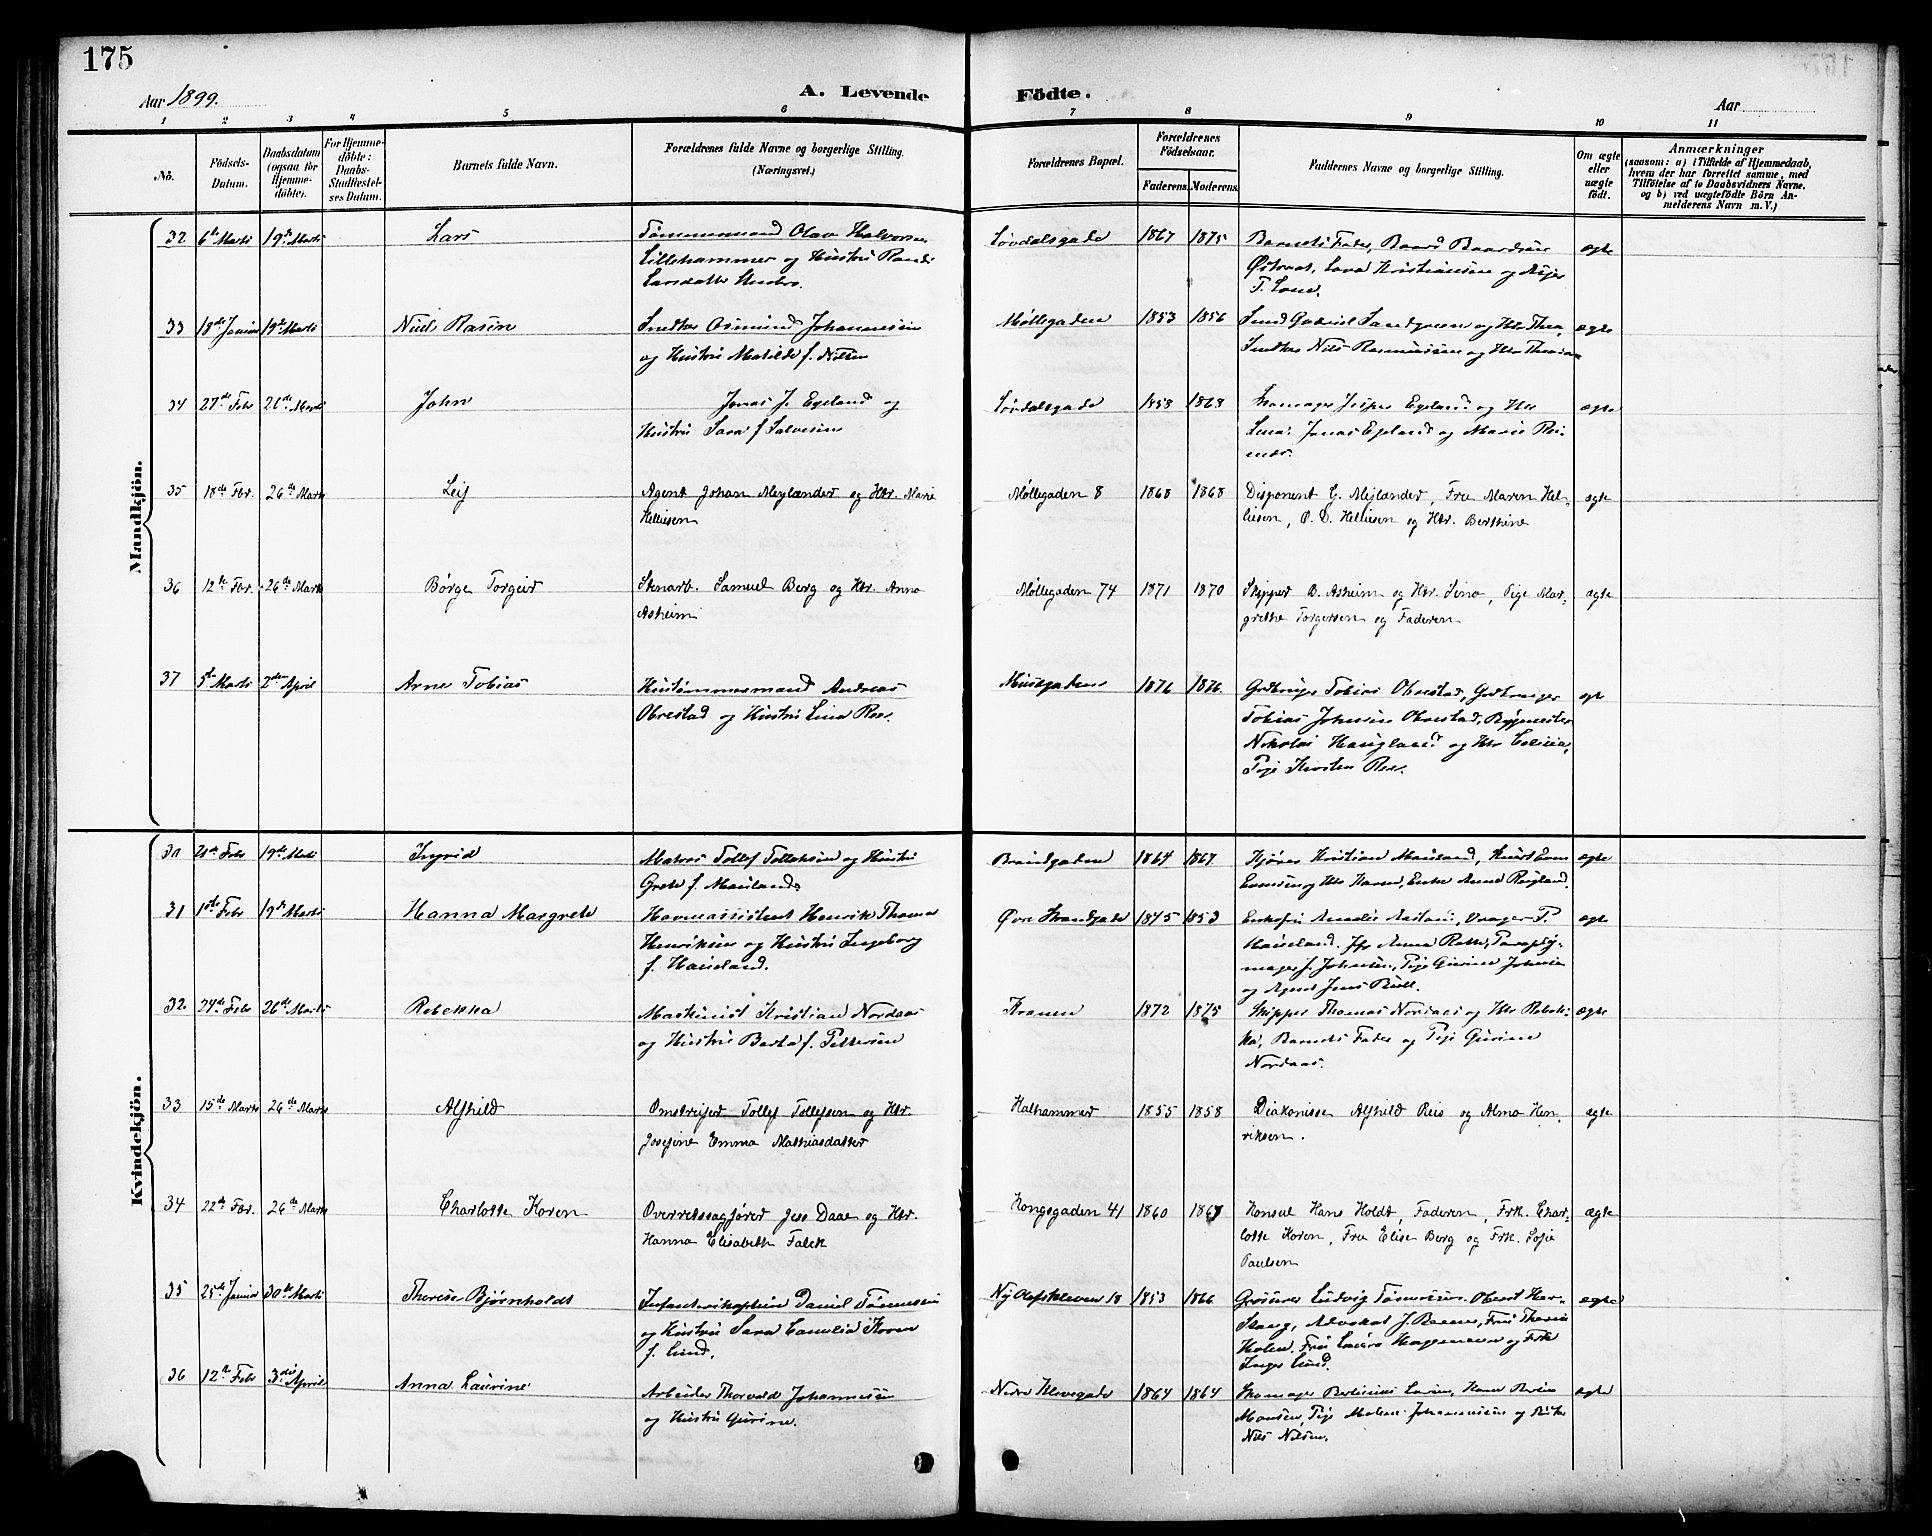 175
Aar 1899.
A. Levende
Födte.
Aar
1 2 3 4 5 6 7 8 9 10 11
No.
Födsels-Datum.
Daabsdatum (ogsaa for Hjemme-döbte).
For Hjemme-döbte: Daabs-Stadfæstel-ses Datum.
Barnets fulde Navn.
Forældrenes fulde Navne og borgerlige Stilling. (Næringsvei.)
Forældrenes Bopæl.
Forældrenes Födselsaar.
Faderens. Moderens.
Faddernes Navne og borgerlige Stilling.
Om ægte eller uægte födt.
Anmærkninger
(saasom: a) i Tilfælde af Hjemmedaab, hvem der har forrettet samme, med Tilföielse af to Daabsvidners Navne, og b) ved uægtefödte Börn An-melderens Navn m. V.)
Mandkjön.
32 6te Marts 19de Marts Lars
Tømmermand Olav Halvorsen
Lillehammer og Hustru Randi
Larsdatter
Løvdalsgade 1867 1875
Barnets Fader, Baard Baardsen
Østraat, Lava Kristiansen og
ægte
33 18de Januar 19de Marts Niels Rasin
Snedker Osmund Johannessen
og Hustru Matilde f. Nilsen
Møllegaden 1853 1856
Smed Gabriel Sandgreen og Htr Thea,
Snedker Nils Rasmussen og Htr
ægte
34 27de Febr 26de Marts John
Jonas J. Egeland og
Hustru Sara f Salvesen
Løvdalsgade 1853 1863
Skomager Jesper Egeland og Htr
Lena, Jonas Egeland og Marie
ægte
35 18de Fbr. 26de Marts Leif
Agent Johan Mejlænder og Htr. Marie
Helliesen
Møllegaden 8 1868 1868
Disponent G. Mejlænder, Fru Maren Hel-
liesen, O. D. Helliesen og Htr. Berthine
ægte
36 12te Fbr. 26de Marts Børge Torgeir
Stenarb. Samuel Berg og Htr. Anna
Asheim
Møllegaden 74 1871 1870
Skipper B. Asheim og Htr. Sina, Pige Mar-
grethe Torgersen og Faderen
ægte
37 5te Marts 2den April Arne Tobias
Hustømmermand Andreas
Obrestad og Hustru Lina Ree.
Musegaden 1876 1876.
Grdbruger Tobias Obrestad, Grdbruger
Tobias Johnsen Obrestad, Bygmester
Nikolai Haugland og Htr
Pige Kirsten Ree.
ægte
Kvindekjön.
30 21de Febr 19de Marts Ingrid
Matros Tollef Tollefsen og Hustru
Grete f. Mauland
Brandgaden 1864 1867
Kjører Kristian Mauland, Knut Even
Evensen og Htr Karen, Enke Anne
ægte
31 1ste Febr 19de Marts Hanna Margrete
Havneassistent Henrik Thomas
Henriksen og Hustru Ingeborg
f. Haueland.
Øvre Strandgade 1845 1853
Enkefru Amalie
Haueland. Jfr Anna Roth, Paraply-
mager J. Johnsen, Pige Gurine Johnsen
og Agent Jens Bull.
ægte
32. 24de Febr 26de Marts Rebekka
Maskinist Kristian Nordaas
og Hustru Berta f. Pettersen
Kranen 1872 1875
Skipper Thomas Nordaas og Htr Rebek-
ka, Barnets Fader og Pige Gurine
Nordaas.
ægte
33 15de Marts 26de Marts Alfhild
Omstreifer Tollef Tollefsen og Htr.
Josefine Emma Mathiasdatter
Kalhammer 1855 1858
Diakonisse Alfhild Reis og Alma Hen-
riksen.
ægte
34 22de Fbr. 26de Marts Charlotte Koren
Overretssagfører Jess Daae og Htr.
Hanna Elisabeth Falck
Kongsgaden 41 1860 1867
Konsul Hans Holdt, Faderen, Frk. Char-
lotte Koren, Fru Elise Berg og Frk. Sofie
Paulsen
ægte
35 25de Januar 30de Marts Therese Bjørnholdt
Infanterikaptein Daniel Tønnessen
og Hustru Sara Camilla Koren
f. Lund.
Ny Olafskleven 18 1853 1866
Grosserer Ludvig Tønnessen. Oberst Her-
Stang, Advokat J. Bærene, Fru Therese
Holen. Fru Laura Hagemann og Frk
Inger Lund.
ægte
36 12te Febr 3die April Anna Laurine
Arbeider Thorvald Johannessen
og Hustru Gurine.
Nedre Klevegade 1864 1864
Skomager Bertinius Larsen, Hans
Monsen, Pige Malene Johannessen og
Nils Nilsen.
ægte